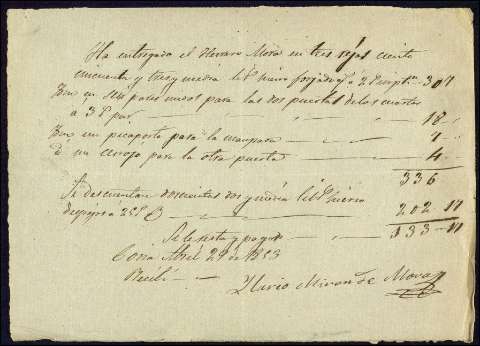 Ha entregado el Herrero Mora en tres rejas ciento
cincuenta y tres y media lib.s hierro forjado a 2 307
en seis pares para las dos puertas de los cuartos
a 3 P par 18
un picaporte para la mampara 7
un cerrojo para la otra puerta 4
336
Se descuentan doscientas dos y media lib.s hierro
202 17
Se le resta y pago 133 17
Abril 29 de 1853
Recibí
Ilario Miron de Mora